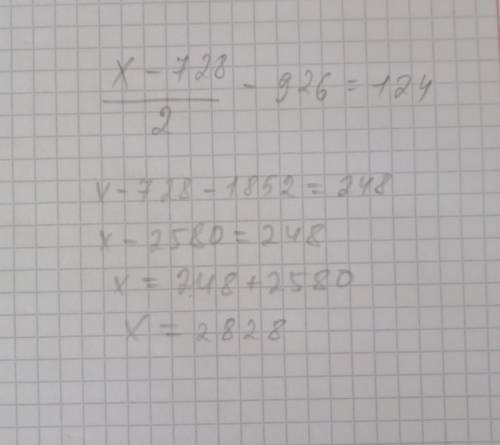 x - 728
───── - 926 = 124
2
x - 728 - 1852 = 248
x - 2580 = 248
x = 248 + 2580
x = 2828